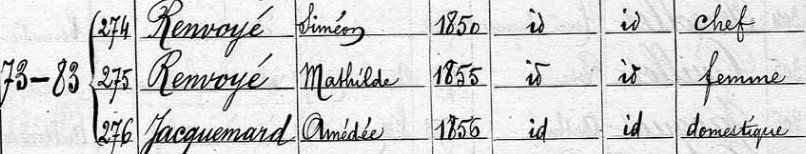 274 Renvoyé Siméon 1850 id id chef
73-83 275 Renvoyé Mathilde 1855 id id femme
276 Jacquemard Amédée 1856 id id domestique